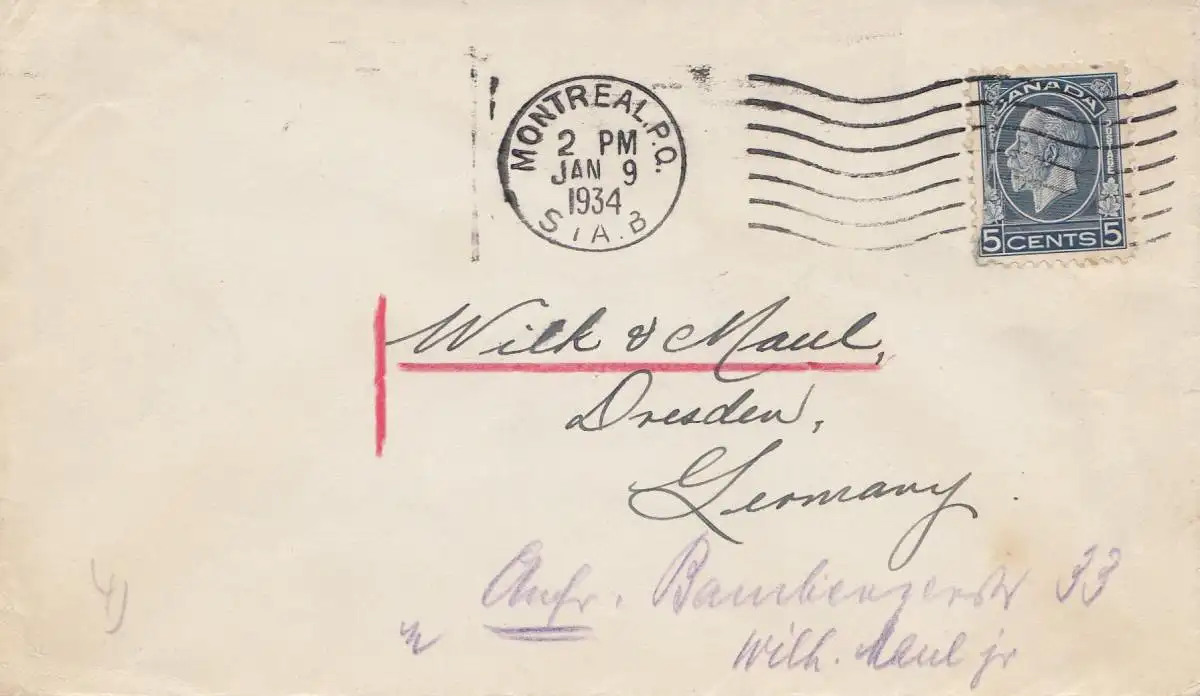 MONTREAL, P.Q.
2 PM
JAN 9
1934
STA. B
CANADA
POSTAGE
5 CENTS 5
Wilk & Maul,
Dresden,
Germany
4)
Anfr. Bambergerstr 33
Wilh. Maul jr